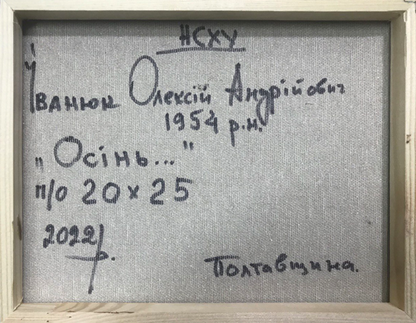 НСХУ
Іванюк Олексій Андрійович
1954 р.н.
"Осінь..."
п/о 20×25
2022 р.
Полтавщина.